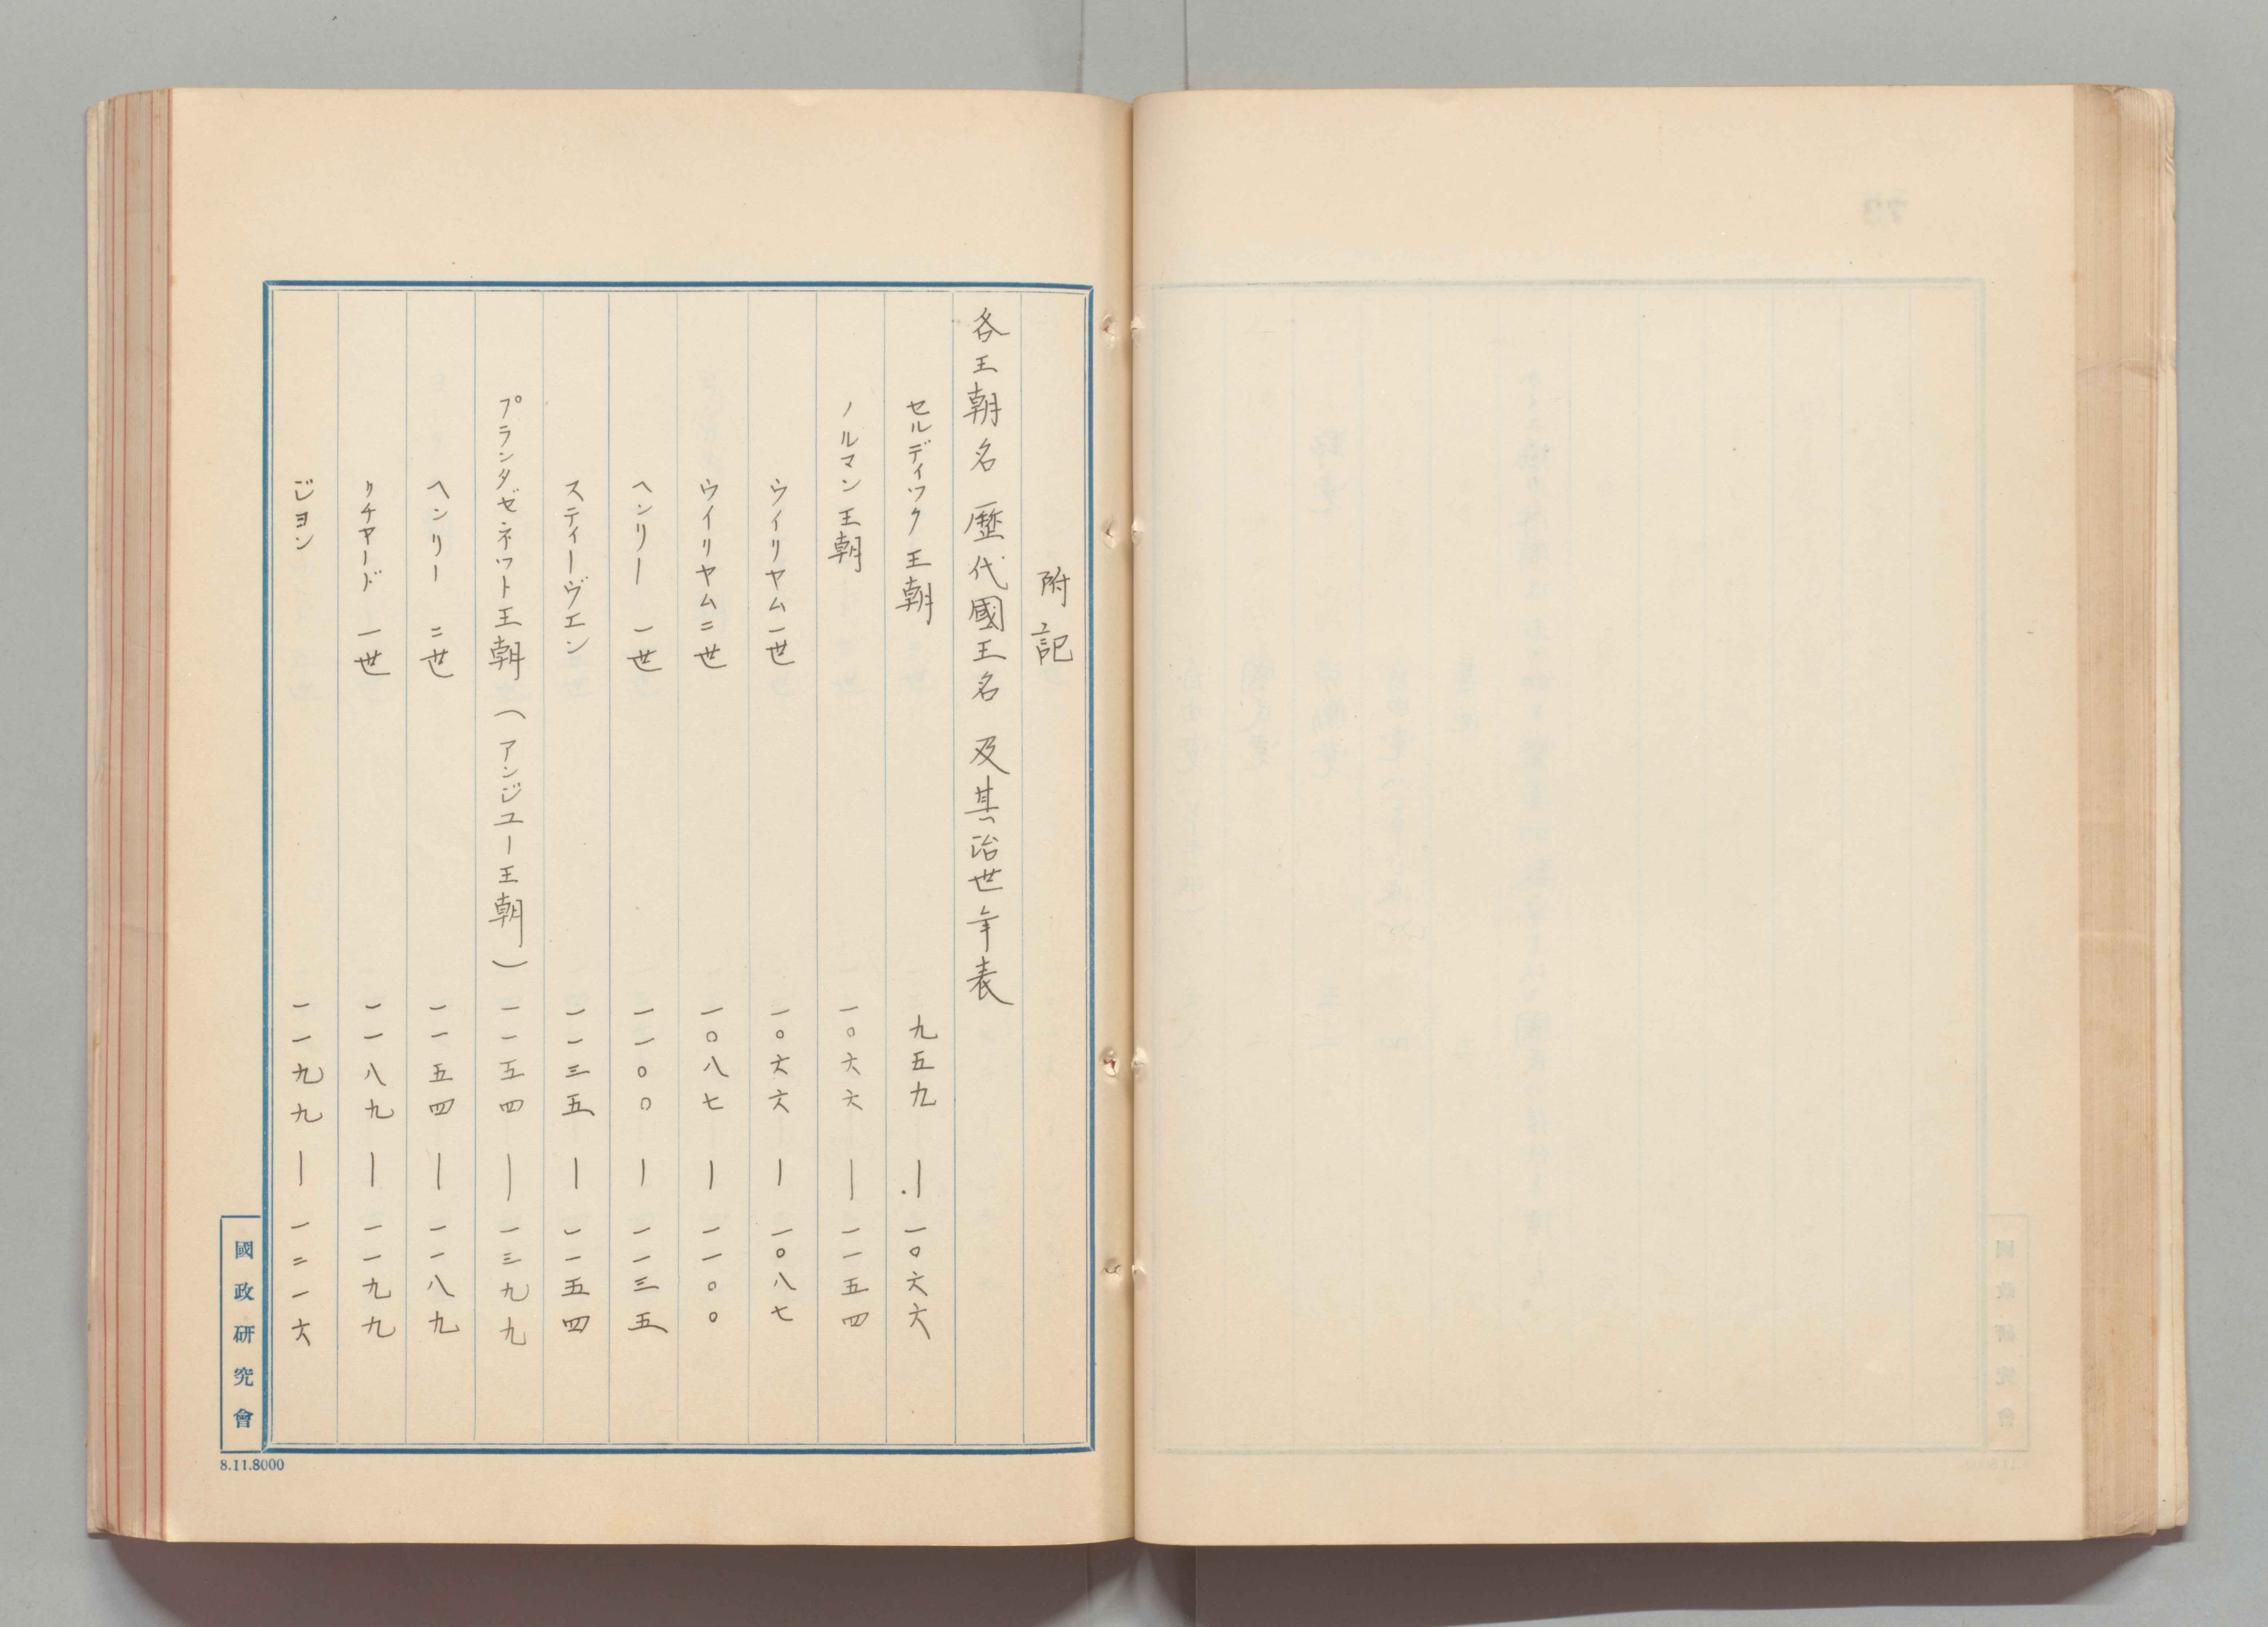 附記
各王朝名歴代國王名及其治世年表
セルディック王朝 九五九―一〇六六
ノルマン王朝 一〇六六―一一五四
ウイリヤム一世 一〇六六―一〇八七
ウイリヤム二世 一〇八七―一一〇〇
ヘンリー一世 一一〇〇―一一三五
スティーヴエン 一一三五―一一五四
プランタゼネット王朝（アンジユー王朝） 一一五四―一三九九
ヘンリー二世 一一五四―一一八九
リチヤード一世 一一八九―一一九九
ジヨン 一一九九―一二一六
國政研究會
8.11.8000